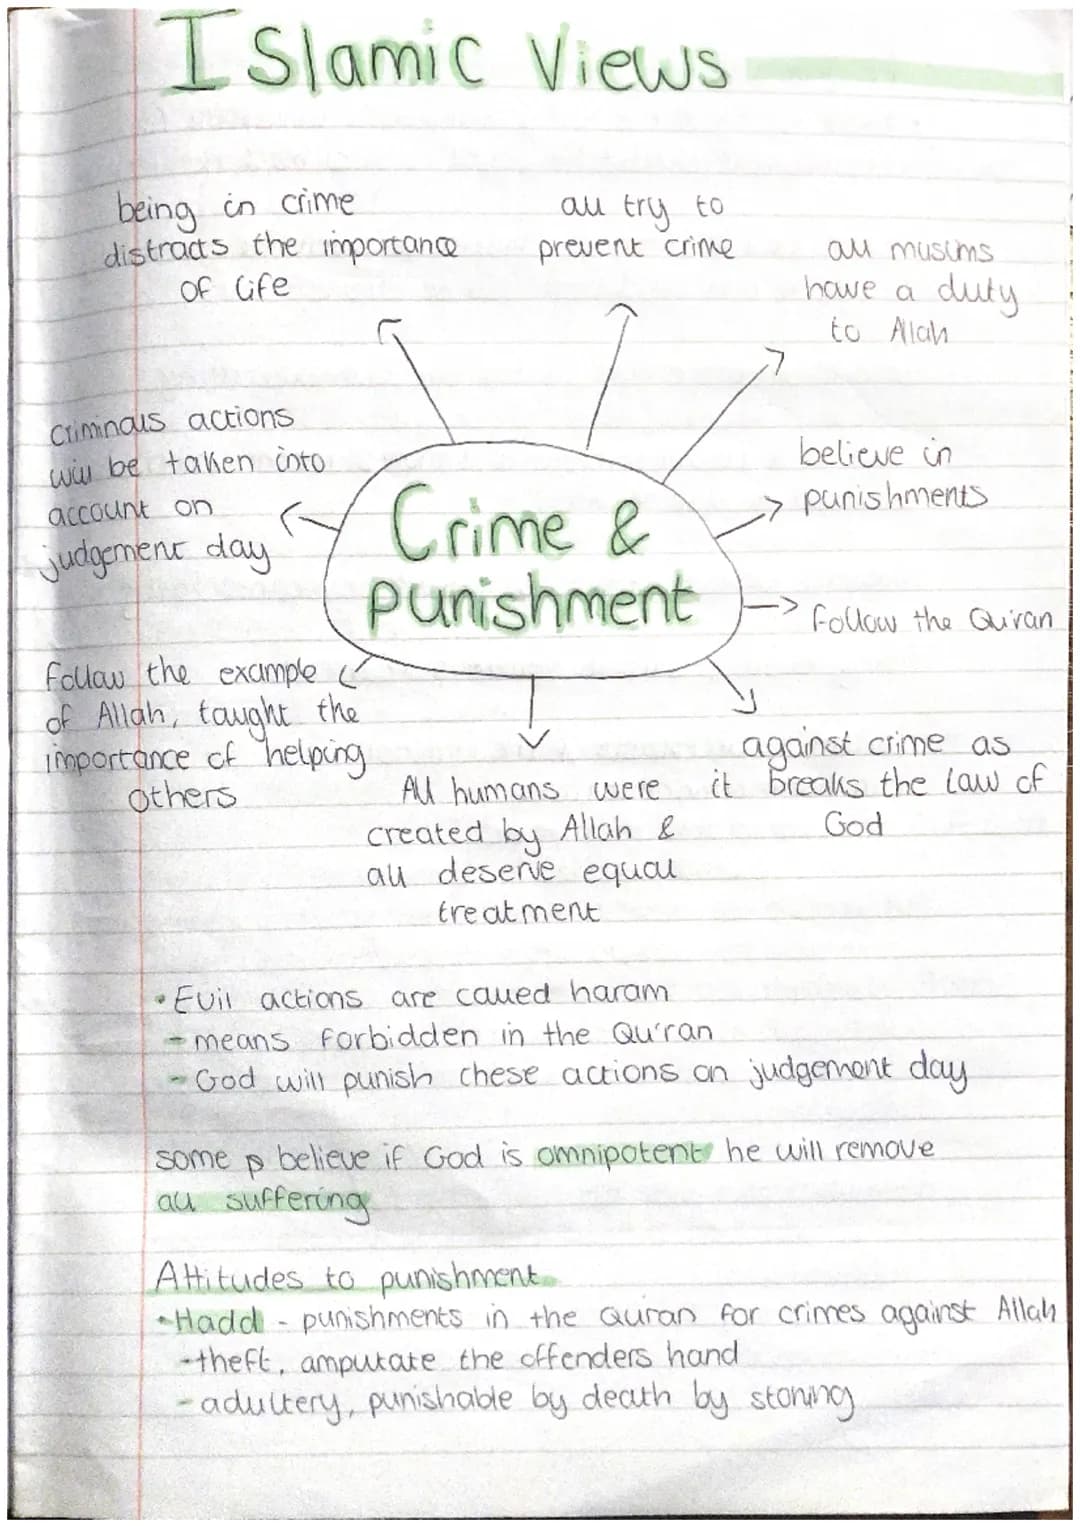 Islamic Views
being in crime
distracts the importance
of life
all try to
prevent crime
all muslims
have a duty
to Allah
criminals actions
will be taken into
account on
judgement day
believe in
punishments
Crime &
Punishment
follow the Qu'ran
follow the example
of Allah, taught the
importance of helping
others
All humans were
created by Allah &
all deserve equal
treatment
against crime as
it breaks the law of
God
• Evil actions are called haram
- means forbidden in the Qu'ran
- God will punish these actions on judgement day
some p believe if God is omnipotent he will remove
all suffering
Attitudes to punishment
• Hadd - punishments in the Quran for crimes against Allah
- theft, amputate the offenders hand
- adultery, punishable by death by stoning